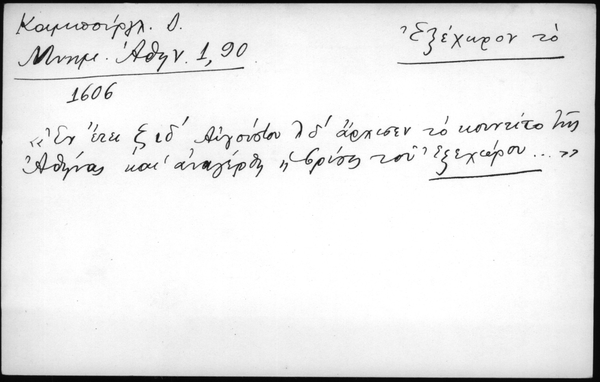 Καμπούργλ. Δ.
Μνημ. Ἀθην. 1, 90
Ἐξέχωρον τό
1606
«Ἐν ἔτει ξιδ' Αὐγούστου λδ' ἄρχισεν τὸ κουντίτο τῆς
Ἀθήνας καὶ ἀναγέρθη ἡ βρύσις τοῦ Ἐξεχώρου...»